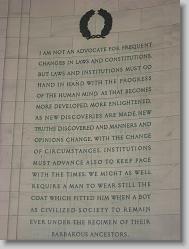 I AM NOT AN ADVOCATE FOR FREQUENT
CHANGES IN LAWS AND CONSTITUTIONS,
BUT LAWS AND INSTITUTIONS MUST GO
HAND IN HAND WITH THE PROGRESS
OF THE HUMAN MIND. AS THAT BECOMES
MORE DEVELOPED, MORE ENLIGHTENED,
AS NEW DISCOVERIES ARE MADE, NEW
TRUTHS DISCOVERED AND MANNERS AND
OPINIONS CHANGE, WITH THE CHANGE
OF CIRCUMSTANCES, INSTITUTIONS
MUST ADVANCE ALSO TO KEEP PACE
WITH THE TIMES. WE MIGHT AS WELL
REQUIRE A MAN TO WEAR STILL THE
COAT WHICH FITTED HIM WHEN A BOY
AS CIVILIZED SOCIETY TO REMAIN
EVER UNDER THE REGIMEN OF THEIR
BARBAROUS ANCESTORS.